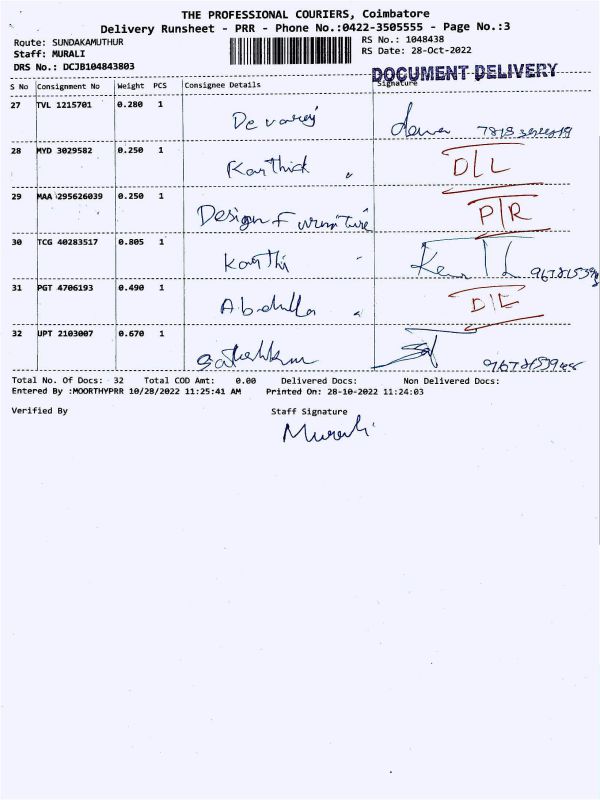 THE PROFESSIONAL COURIERS, Coimbatore
Delivery Runsheet - PRR - Phone No.:0422-3505555 - Page No.:3
Route: SUNDAKAMUTHUR
RS No.: 1048438
Staff: MURALI
RS Date: 28-Oct-2022
DRS No.: DCJB104843803
DOCUMENT DELIVERY
S No Consignment No Weight PCS Consignee Details Signature
27 TVL 1215701 0.280 1
Devaraj
28 MYD 3029582 0.250 1
Karthick D/L
29 MAA 295626039 0.250 1
Design Furniture P/R
30 TCG 40283517 0.805 1
Karthi
31 PGT 4706193 0.490 1
Abdulla D/L
32 UPT 2103007 0.670 1
Total No. Of Docs: 32 Total COD Amt: 0.00 Delivered Docs: Non Delivered Docs:
Entered By :MOORTHYPRR 10/28/2022 11:25:41 AM Printed On: 28-10-2022 11:24:03
Verified By Staff Signature
Murali